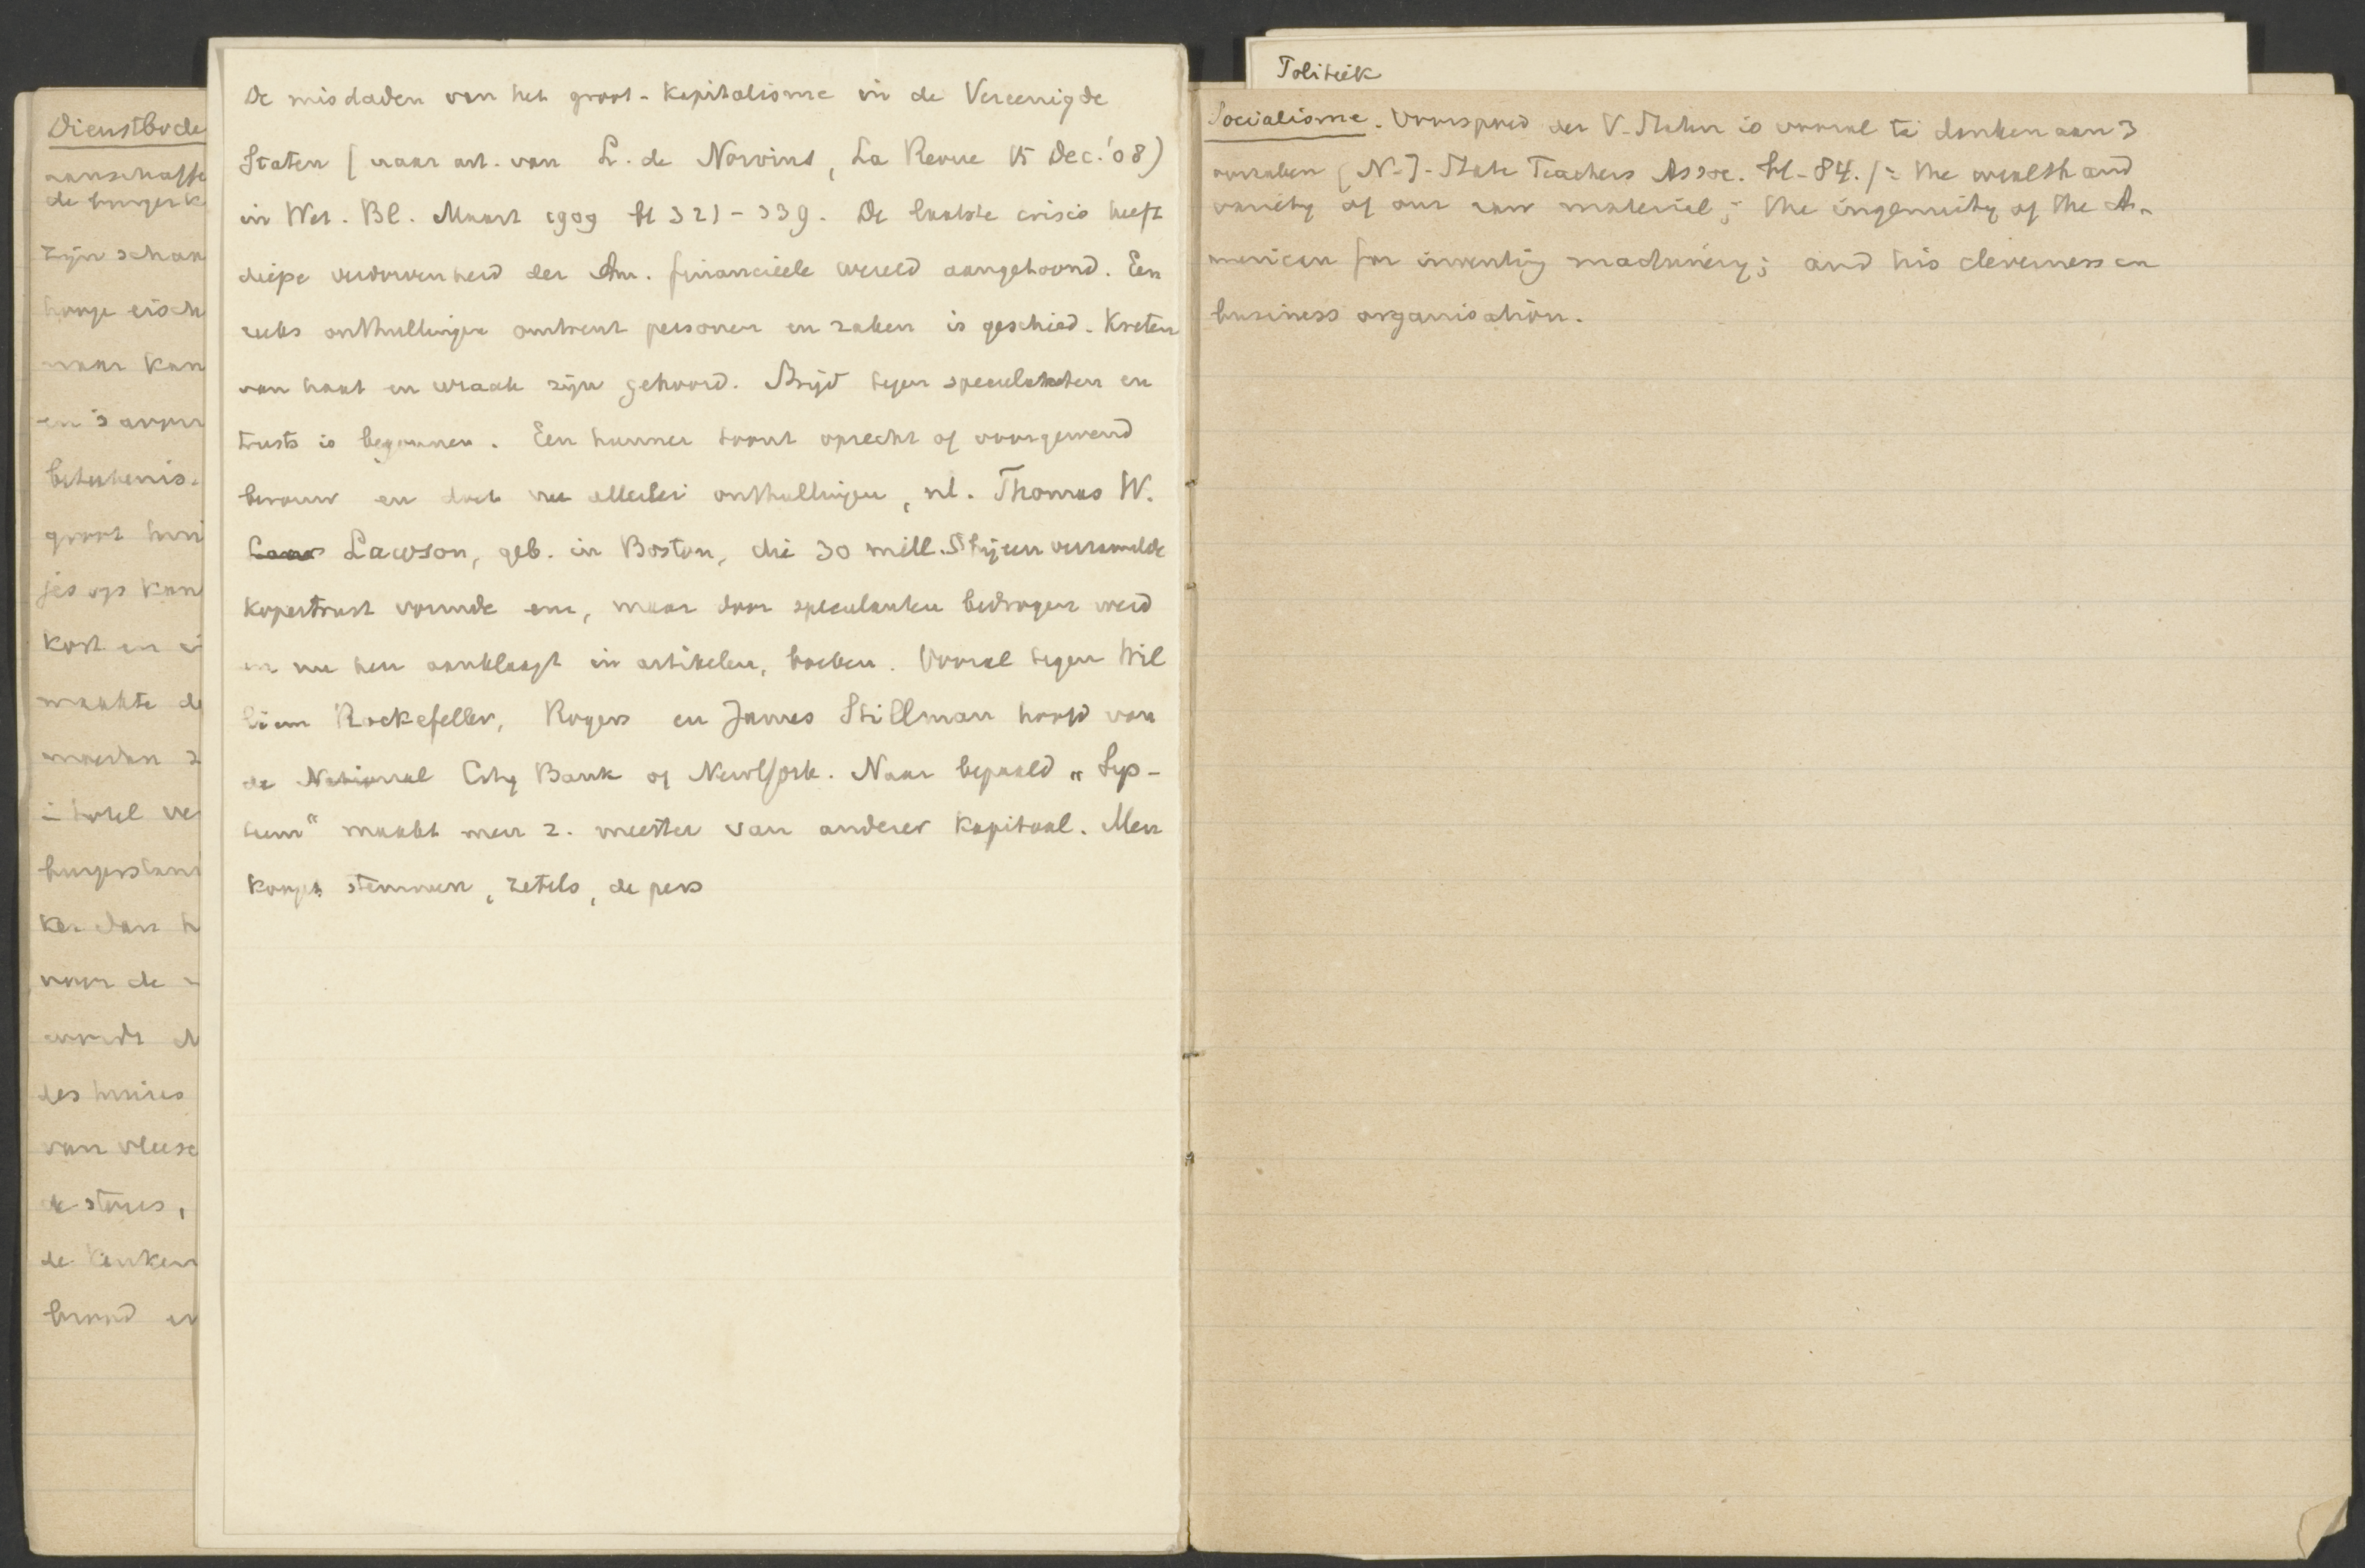 Dienstbode
aanschaffe
de burgerk
zijn schan
hooge eisch
maar kan
en 's avon
beteekenis.
groot hui
jes op kan
kost en i
maakte de
moeder 2
hotel ve
burgerstand
ker dan h
voor de
wordt
des huizes
van vleesc
de stores,
de keuken
brood en
De misdaden van het groot-kapitalisme in de Vereenigde
Staten (naar art. van L. de Norvins, La Revue 15 Dec. '08)
in Wet. Bl. Maart 1909 bl 321-339. De laatste crisis heeft
diepe verdorvenheid der Am. financieele wereld aangetoond. Een
reeks onthullingen omtrent personen en zaken is geschied. Kreten
van haat en wraak zijn gehoord. Strijd tegen speculatien en
trusts is begonnen. Een hunner toont oprecht of voorgewend
berouw en doet nu allerlei onthullingen, nl. Thomas W.
Lawson, geb. in Boston, die 30 mill. bijeen verzamelde
kopertrust vormde enz, maar door speculanten bedrogen werd
en nu hen aanklaagt in artikelen, boeken. Vooral tegen Wil
liam Rockefeller, Rogers en James Stillman hoofd van
de National City Bank of NewYork. Naar bepaald "Sys-
teem" maakt men z. meester van anderer kapitaal. Men
koopt stemmen, zetels, de pers
Politiek
Socialisme. Voorspoed der V-Staten is vooral te danken aan 3
oorzaken (N-J-State Teachers Assoc. bl-84.): the wealth and
variety of our raw material; the ingenuity of the A-
merican for inventing machinery; and his cleverness in
business organisation.